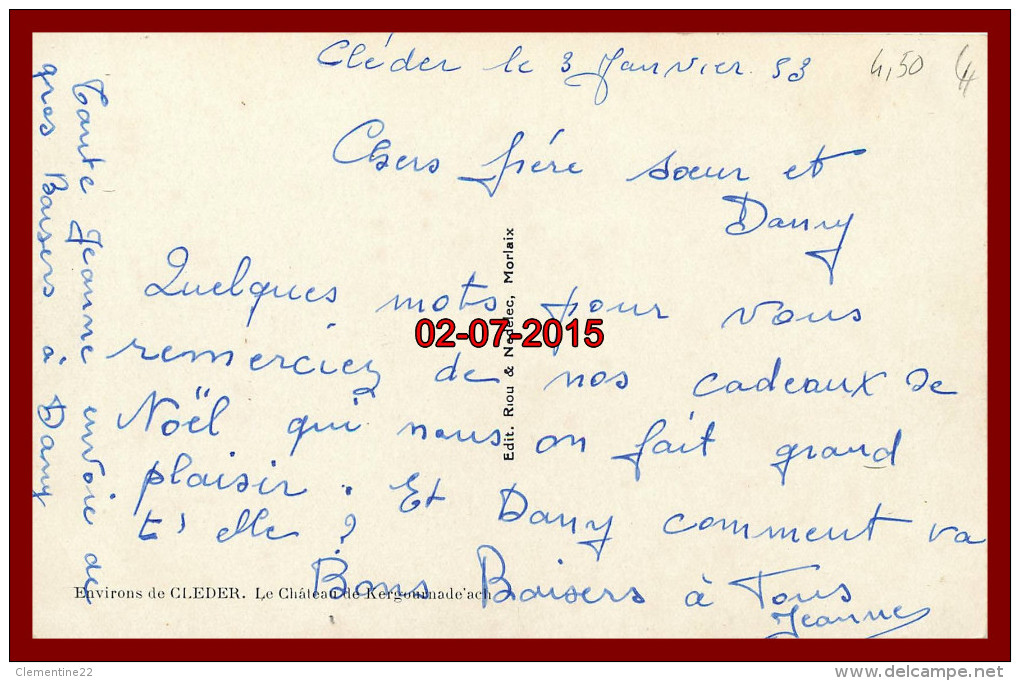 Cléder le 3 Janvier 53
4,50
Chers frère sœur et
Dany
Quelques mots pour vous
remerciez de nos cadeaux de
Noël qui nous on fait grand
plaisir. Et Dany comment va
t'elle ?
Bons Baisers à Tous
Jeanne
Tante Jeanne envoie de
gros Baisers à Dany
Edit. Riou & Nédélec, Morlaix
Environs de CLEDER. Le Château de Kergournade'ach
02-07-2015
Clementine22
http://www.delcampe.net